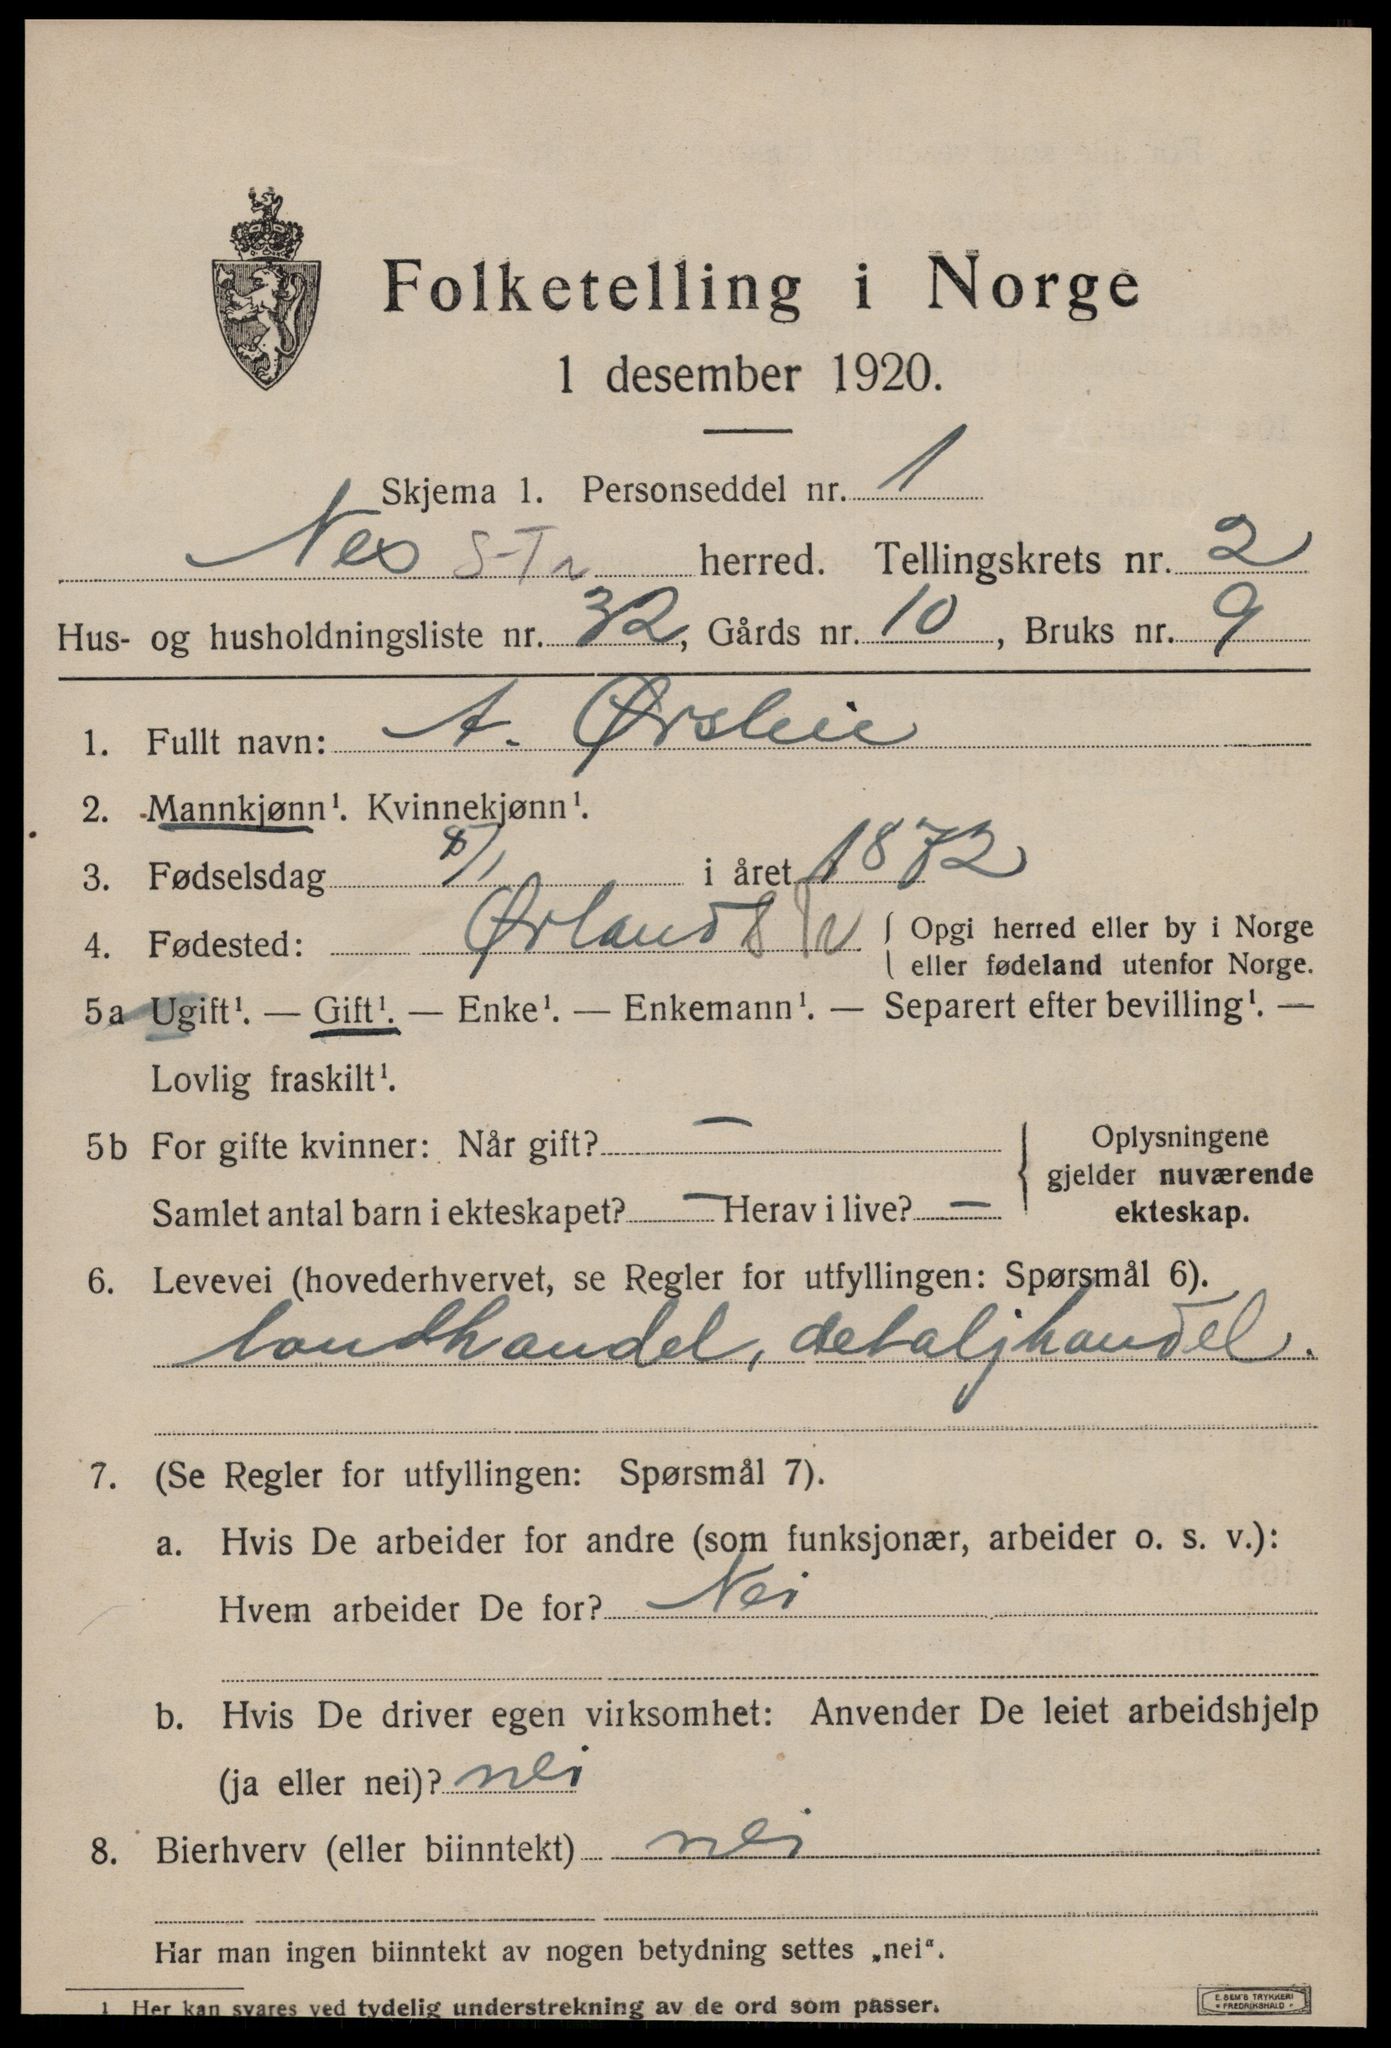 Folketelling i Norge
1 desember 1920.
Skjema 1. Personseddel nr. 1
Nes S-Tr herred. Tellingskrets nr. 2
Hus- og husholdningsliste nr. 32, Gårds nr. 10, Bruks nr. 9
1. Fullt navn: A. Ørsleie
2. Mannkjønn¹. Kvinnekjønn¹.
3. Fødselsdag 8/1 i året 1872
4. Fødested: Ørland { Opgi herred eller by i Norge
eller fødeland utenfor Norge.
5a Ugift¹. — Gift¹. — Enke¹. — Enkemann¹. — Separert efter bevilling¹. —
Lovlig fraskilt¹.
5b For gifte kvinner: Når gift? —
Samlet antal barn i ekteskapet? — Herav i live? —
Oplysningene
gjelder nuværende
ekteskap.
6. Levevei (hovederhvervet, se Regler for utfyllingen: Spørsmål 6).
landhandel, detaljhandel.
7. (Se Regler for utfyllingen: Spørsmål 7).
a. Hvis De arbeider for andre (som funksjonær, arbeider o. s. v.):
Hvem arbeider De for? Nei
b. Hvis De driver egen virksomhet: Anvender De leiet arbeidshjelp
(ja eller nei)? nei
8. Bierhverv (eller biinntekt) nei
Har man ingen biinntekt av nogen betydning settes „nei“.
1 Her kan svares ved tydelig understrekning av de ord som passer.
E. SEM'S TRYKKERI
• FREDRIKSHALD •